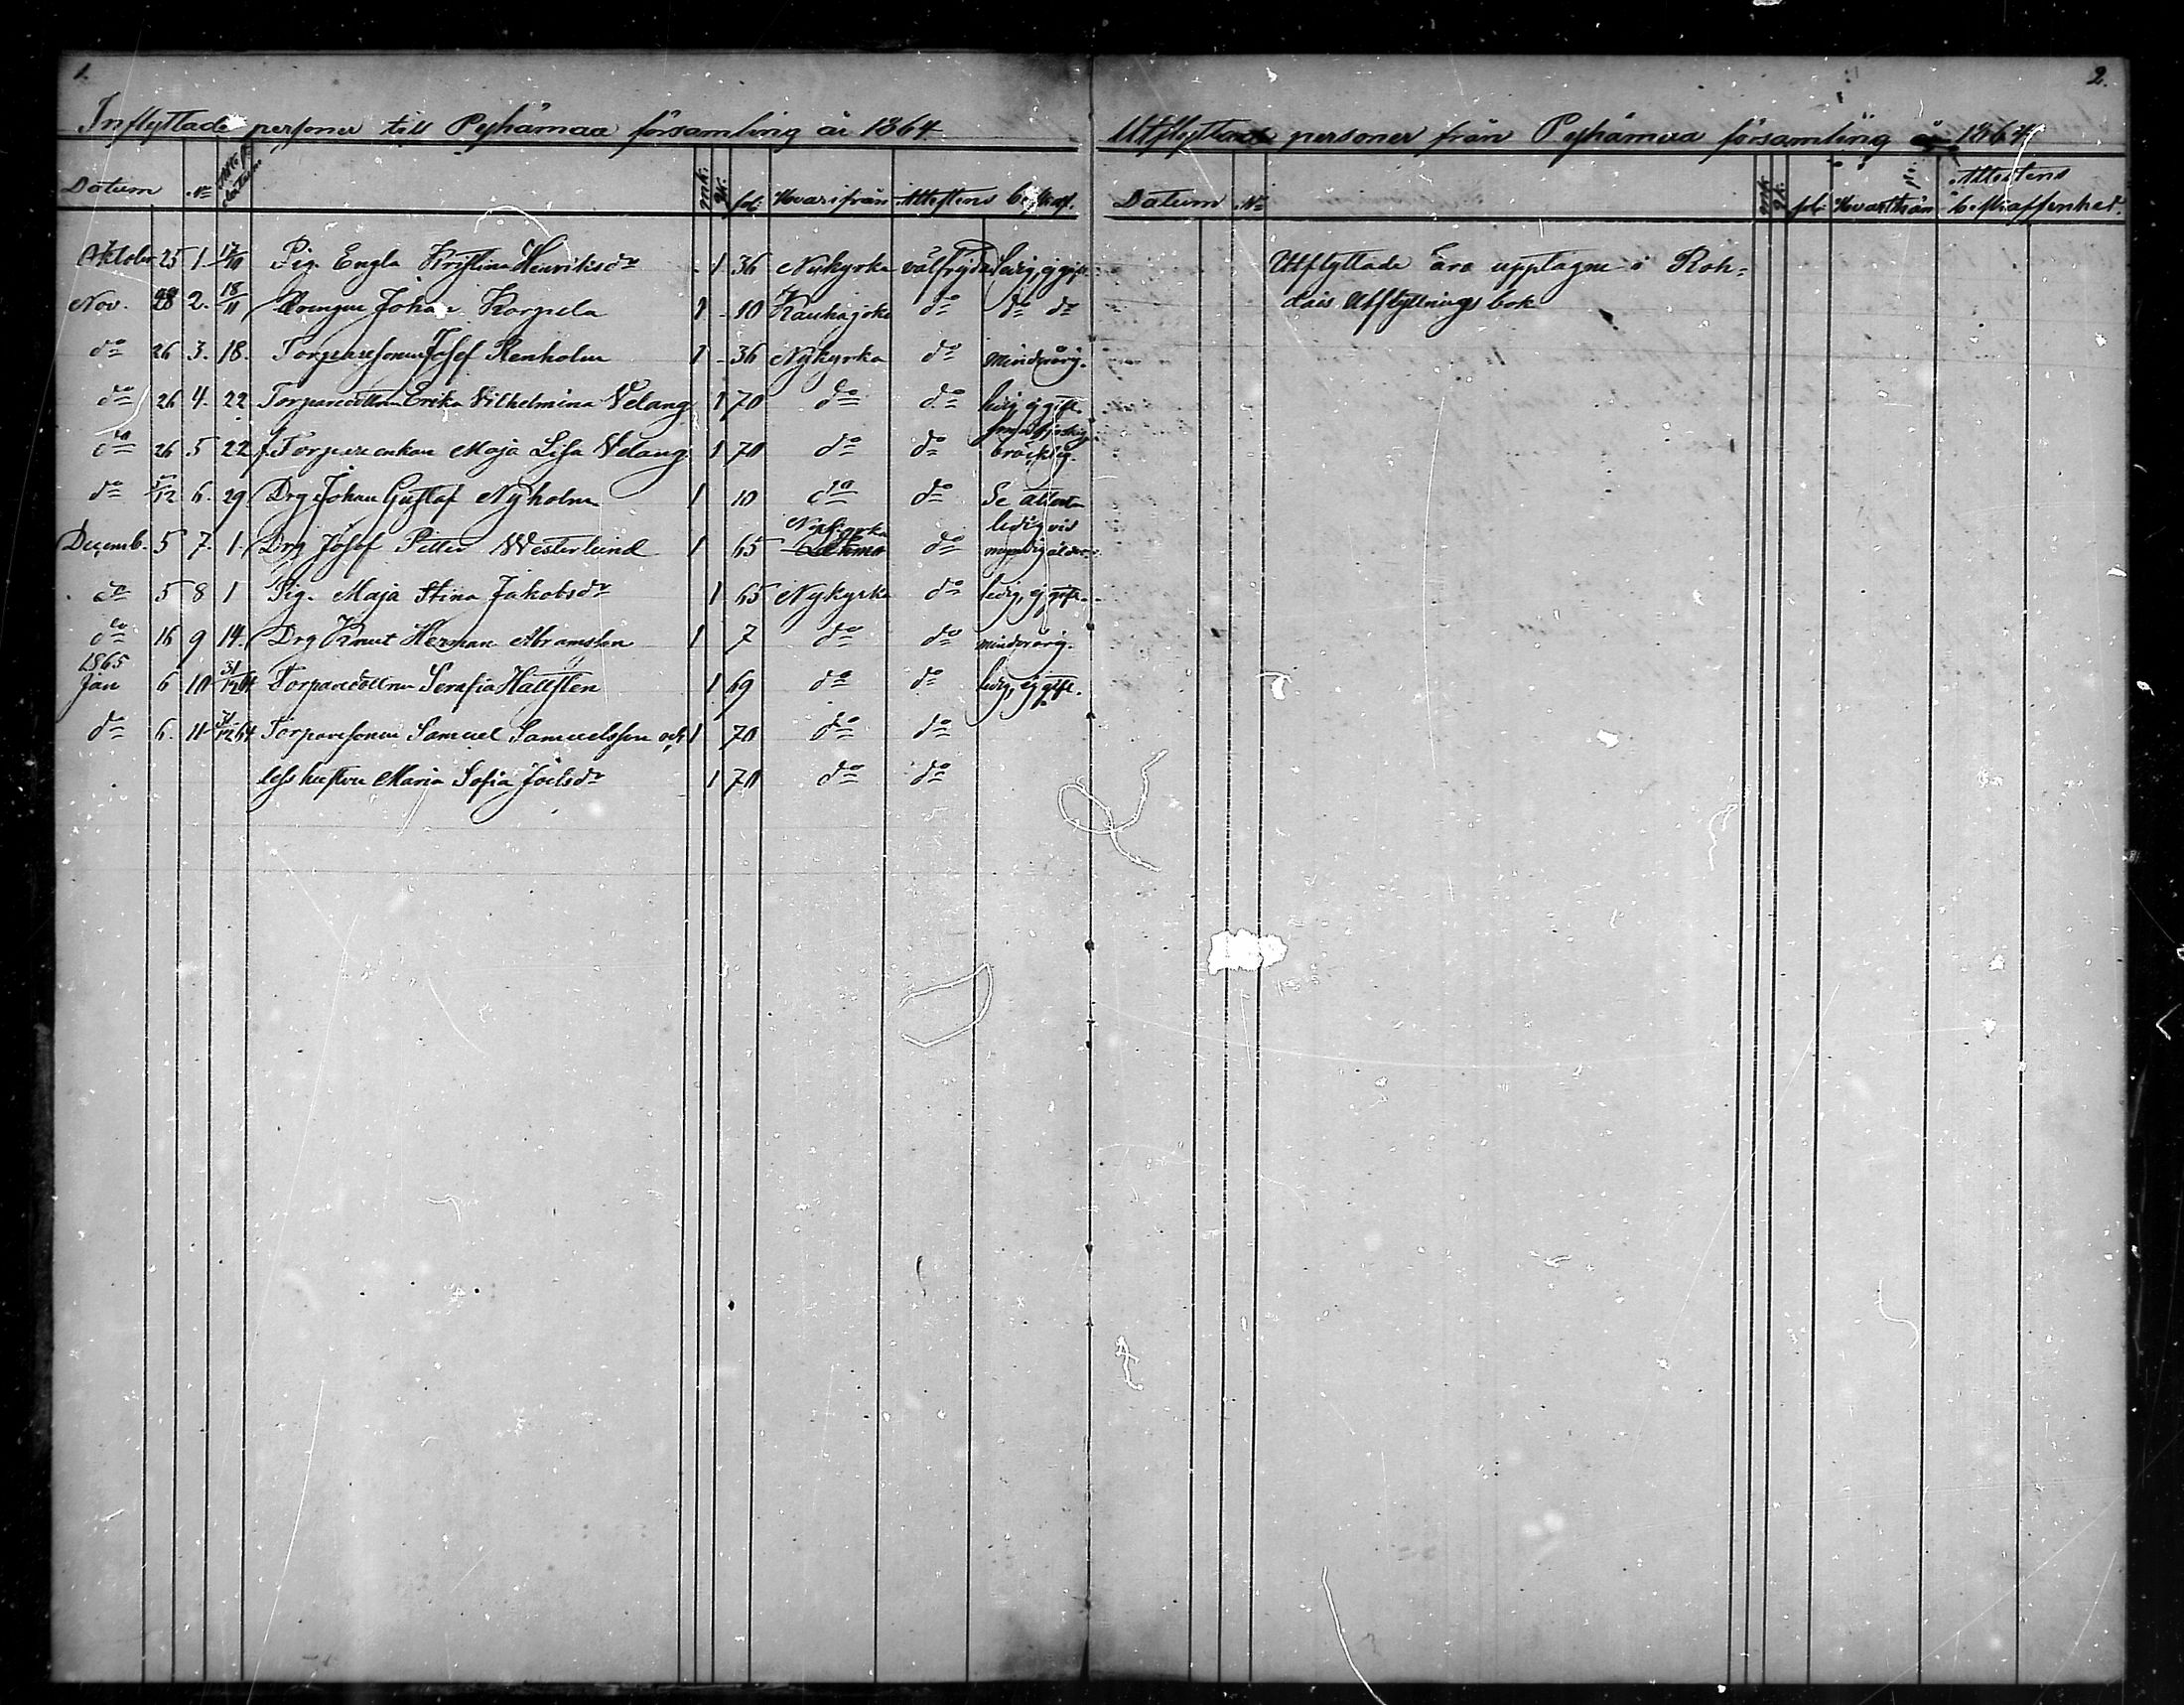 1.
Inflyttade personer till Pyhämaa församling år 1864
Datum No Attest. datum mk. qk. fol. Hvarifrån Attestens beskaf.
Oktober 25 1. 17/10 Pig. Engla Kristina Henriksdr 1 36 Nykyrka välfrejdad ledig, ej gift.
Nov. 28 2. 18/11 Drengen Johan Korpela 1 10 Kauhajoki do do do
do 26 3. 18. Torparesonen Josef Renholm 1 36 Nykyrka do minderårig.
do 26 4. 22 Torparedottren Erika Vilhelmina Velang 1 70 do do ledig, ej gift.
do 26 5 22 f. Torpare enkan Maja Lisa Velang 1 70 do do bräcklig.
do 5/12 6. 29 Drg Johan Gustaf Nyholm 1 10 do do Se attesten
Decemb. 5 7. 1. Drg Josef Petter Westerlund 1 65 Nykyrka do ledig vid myndig ålder
do 5 8 1 Pig. Maja Stina Jakobsdr 1 65 Nykyrka do ledig, ej gift.
do 16 9 14. Drg Knut Herman Abramsson 1 7 do do minderårig.
1865
Jan 6 10 31/12 64 Torparedottren Serafia Hallsten 1 69 do do ledig, ej gift.
do 6. 11 31/12 64 Torparesonen Samuel Samuelsson och 1 70 do do
dess hustru Maria Sofia Joelsdr 1 70 do do
2.
Utflyttade personer från Pyhämaa församling år 1864
Datum No mk. qk. fol. Attestens beskaffenhet.
Utflyttade äro upptagne i Roh-
dais Utflyttnings bok